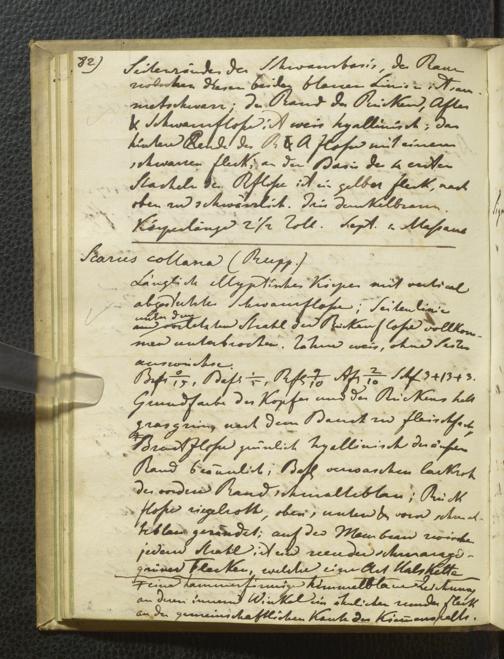 82)
Seitenränder der Schwanzbasis, der Raum
zwischen diesen beiden blauen Linien ist sam-
metschwarz; der Rand der Rücken, After
& Schwanzflosse ist weis hyallinisch; das
hintere Ende der R & A flosse mit einem
schwarzen fleck; an der Basis der 4 ersten
Stacheln der Rflosse ist ein gelber fleck, nach
oben zu schwärzlich. Iris dunkelbraun.
Körperlänge 2 1/2 Zoll. Sept. Massaua
Scarus collana (Rupp.)
Länglich elliptischer Körper mit vertical
abgestutzter Schwanzflosse; Seitenlinie
unter dem
vorletzten Strahl der Rückenflosse vollkom-
men unterbrochen. Zähne weis, ohne Seiten
auswüchse.
Brfs 0/13, Bafs 1/5, Rfs 9/10 Afs 2/10 Schf 3+13+3.
Grundfarbe des Kopfes und des Rückens hell
grasgrün, nach dem Bauch zu fleischfarb,
Brustflosse grünlich hyallinisch der obere
Rand bräunlich; Bafl verwaschen lackroth
der vordere Rand schmalteblau; Rück
flosse ziegelroth, oben, unten & vorn schmal-
teblau gerandet; auf der Membran zwischen
jedem Strahl ist ein runder schwarzge-
grüner flecken, welche eine Art Halskette
eine hammerförmige himmelblaue Zeichnung
an deren innerm Winkel ein ähnlicher runder fleck
an der gemeinschaftlichen Kante des Kiemenspalts.